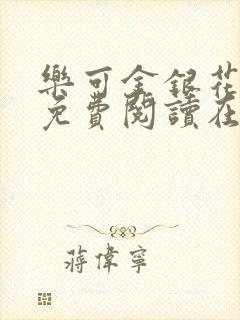 樂可金銀花
免費閱讀在
蔣偉寧